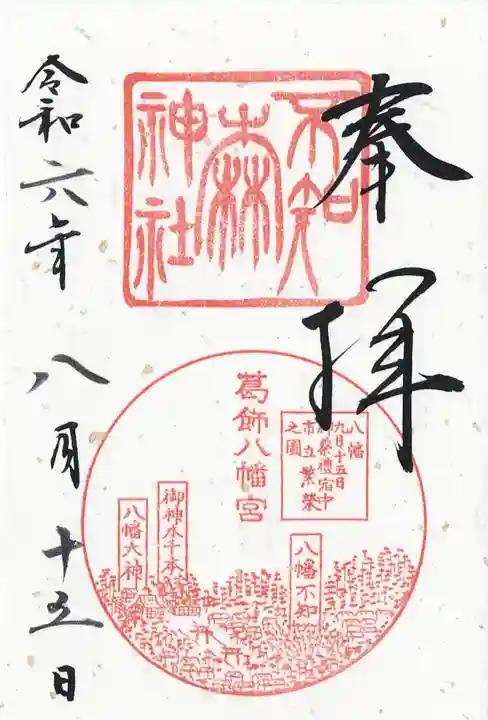 奉拝
不知
森
神社
令和六年八月十五日
八幡
祭禮宿中
市立繁榮
之圖
葛飾八幡宮
八幡不知
御神木千本
八幡大神